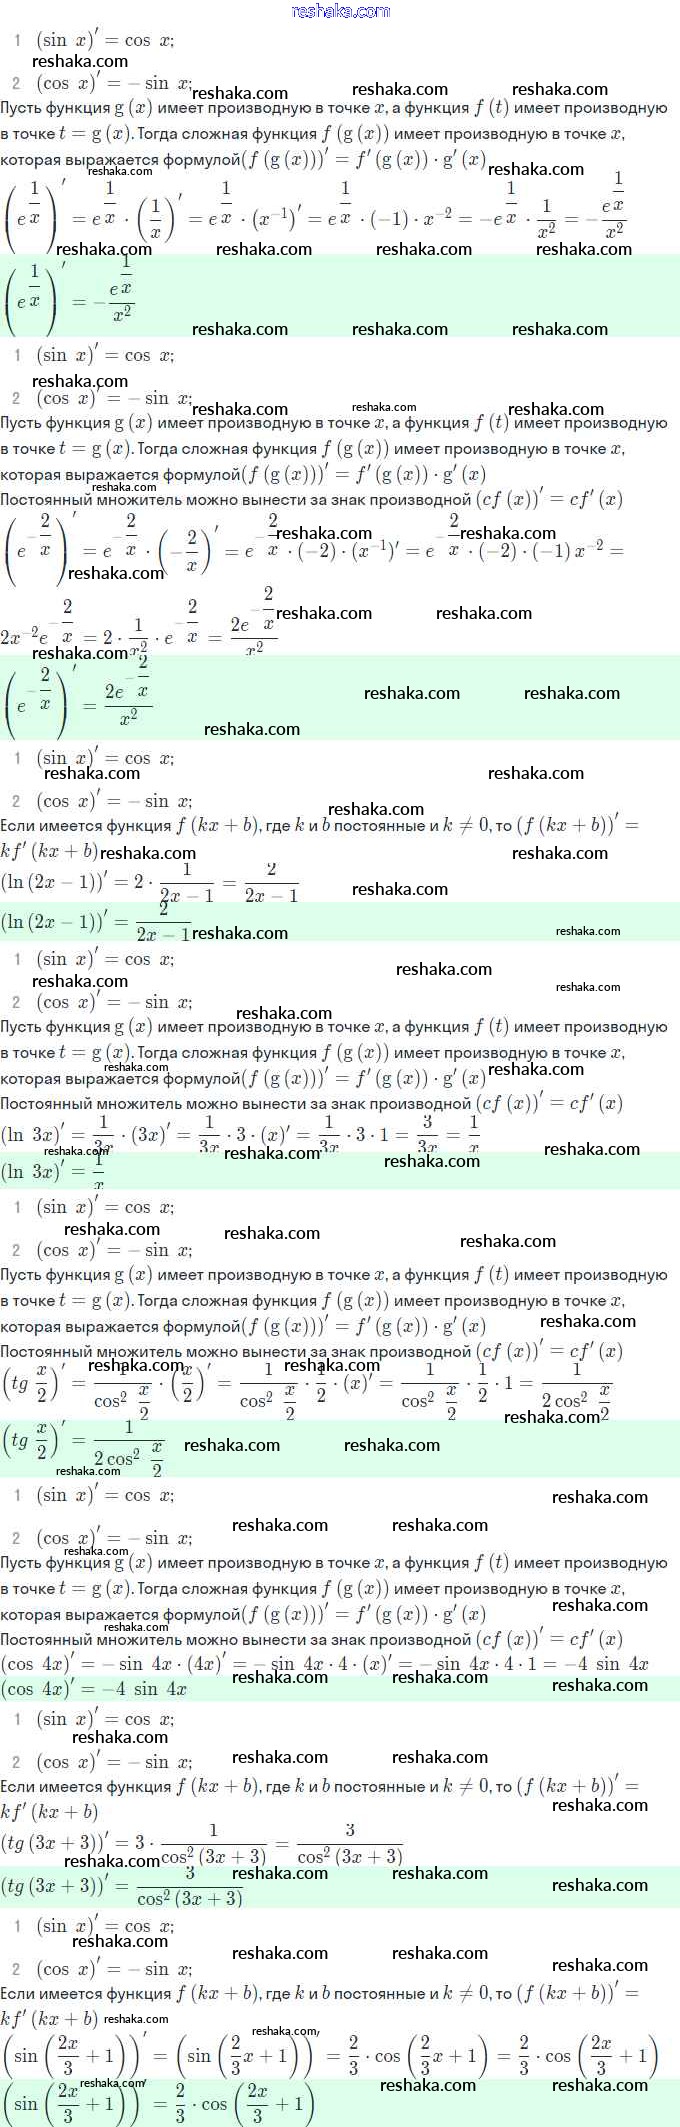 reshaka.com
1 (sin x)′ = cos x;
reshaka.com
2 (cos x)′ = − sin x;
reshaka.com reshaka.com reshaka.com
Пусть функция g (x) имеет производную в точке x, а функция f (t) имеет производную
в точке t = g (x). Тогда сложная функция f (g (x)) имеет производную в точке x,
которая выражается формулой(f (g (x)))′ = f′ (g (x)) · g′ (x)
reshaka.com reshaka.com
(e^{1/x})′ = e^{1/x} · (1/x)′ = e^{1/x} · (x⁻¹)′ = e^{1/x} · (−1) · x⁻² = −e^{1/x} · 1/x² = − e^{1/x}/x²
reshaka.com reshaka.com reshaka.com reshaka.com
(e^{1/x})′ = − e^{1/x}/x²
reshaka.com reshaka.com reshaka.com
1 (sin x)′ = cos x;
reshaka.com
2 (cos x)′ = − sin x;
reshaka.com reshaka.com reshaka.com
Пусть функция g (x) имеет производную в точке x, а функция f (t) имеет производную
в точке t = g (x). Тогда сложная функция f (g (x)) имеет производную в точке x,
которая выражается формулой(f (g (x)))′ = f′ (g (x)) · g′ (x)
reshaka.com
Постоянный множитель можно вынести за знак производной (cf (x))′ = cf′ (x)
(e^{−2/x})′ = e^{−2/x} · (−2/x)′ = e^{−2/x} · (−2) · (x⁻¹)′ = e^{−2/x} · (−2) · (−1) x⁻² =
reshaka.com reshaka.com
reshaka.com
2x⁻²e^{−2/x} = 2 · 1/x² · e^{−2/x} = 2e^{−2/x}/x²
reshaka.com reshaka.com
reshaka.com
(e^{−2/x})′ = 2e^{−2/x}/x²
reshaka.com reshaka.com
reshaka.com
1 (sin x)′ = cos x;
reshaka.com reshaka.com
2 (cos x)′ = − sin x;
reshaka.com
Если имеется функция f (kx + b), где k и b постоянные и k ≠ 0, то (f (kx + b))′ =
kf′ (kx + b)
reshaka.com reshaka.com
(ln (2x − 1))′ = 2 · 1/(2x − 1) = 2/(2x − 1)
reshaka.com
(ln (2x − 1))′ = 2/(2x − 1)
reshaka.com reshaka.com
1 (sin x)′ = cos x;
reshaka.com
reshaka.com reshaka.com
2 (cos x)′ = − sin x;
reshaka.com
Пусть функция g (x) имеет производную в точке x, а функция f (t) имеет производную
в точке t = g (x). Тогда сложная функция f (g (x)) имеет производную в точке x,
reshaka.com reshaka.com
которая выражается формулой(f (g (x)))′ = f′ (g (x)) · g′ (x)
Постоянный множитель можно вынести за знак производной (cf (x))′ = cf′ (x)
(ln 3x)′ = 1/3x · (3x)′ = 1/3x · 3 · (x)′ = 1/3x · 3 · 1 = 3/3x = 1/x
reshaka.com reshaka.com reshaka.com reshaka.com
(ln 3x)′ = 1/x
1 (sin x)′ = cos x;
reshaka.com reshaka.com reshaka.com
2 (cos x)′ = − sin x;
Пусть функция g (x) имеет производную в точке x, а функция f (t) имеет производную
в точке t = g (x). Тогда сложная функция f (g (x)) имеет производную в точке x,
reshaka.com
которая выражается формулой(f (g (x)))′ = f′ (g (x)) · g′ (x)
Постоянный множитель можно вынести за знак производной (cf (x))′ = cf′ (x)
reshaka.com reshaka.com
(tg x/2)′ = 1/(cos² x/2) · (x/2)′ = 1/(cos² x/2) · 1/2 · (x)′ = 1/(cos² x/2) · 1/2 · 1 = 1/(2 cos² x/2)
reshaka.com
(tg x/2)′ = 1/(2 cos² x/2)
reshaka.com reshaka.com
reshaka.com
1 (sin x)′ = cos x;
reshaka.com
reshaka.com reshaka.com
2 (cos x)′ = − sin x;
reshaka.com
Пусть функция g (x) имеет производную в точке x, а функция f (t) имеет производную
в точке t = g (x). Тогда сложная функция f (g (x)) имеет производную в точке x,
reshaka.com
которая выражается формулой(f (g (x)))′ = f′ (g (x)) · g′ (x)
reshaka.com
Постоянный множитель можно вынести за знак производной (cf (x))′ = cf′ (x)
(cos 4x)′ = − sin 4x · (4x)′ = − sin 4x · 4 · (x)′ = − sin 4x · 4 · 1 = −4 sin 4x
reshaka.com reshaka.com reshaka.com
(cos 4x)′ = −4 sin 4x
1 (sin x)′ = cos x;
reshaka.com
2 (cos x)′ = − sin x;
reshaka.com reshaka.com
Если имеется функция f (kx + b), где k и b постоянные и k ≠ 0, то (f (kx + b))′ =
reshaka.com
kf′ (kx + b)
(tg (3x + 3))′ = 3 · 1/(cos² (3x + 3)) = 3/(cos² (3x + 3))
reshaka.com reshaka.com reshaka.com
(tg (3x + 3))′ = 3/(cos² (3x + 3))
reshaka.com
1 (sin x)′ = cos x;
reshaka.com
reshaka.com reshaka.com
2 (cos x)′ = − sin x;
reshaka.com
Если имеется функция f (kx + b), где k и b постоянные и k ≠ 0, то (f (kx + b))′ =
kf′ (kx + b)
reshaka.com
reshaka.com
(sin (2x/3 + 1))′ = (sin (2/3 x + 1))′ = 2/3 · cos (2/3 x + 1) = 2/3 · cos (2x/3 + 1)
reshaka.com reshaka.com reshaka.com
(sin (2x/3 + 1))′ = 2/3 · cos (2x/3 + 1)